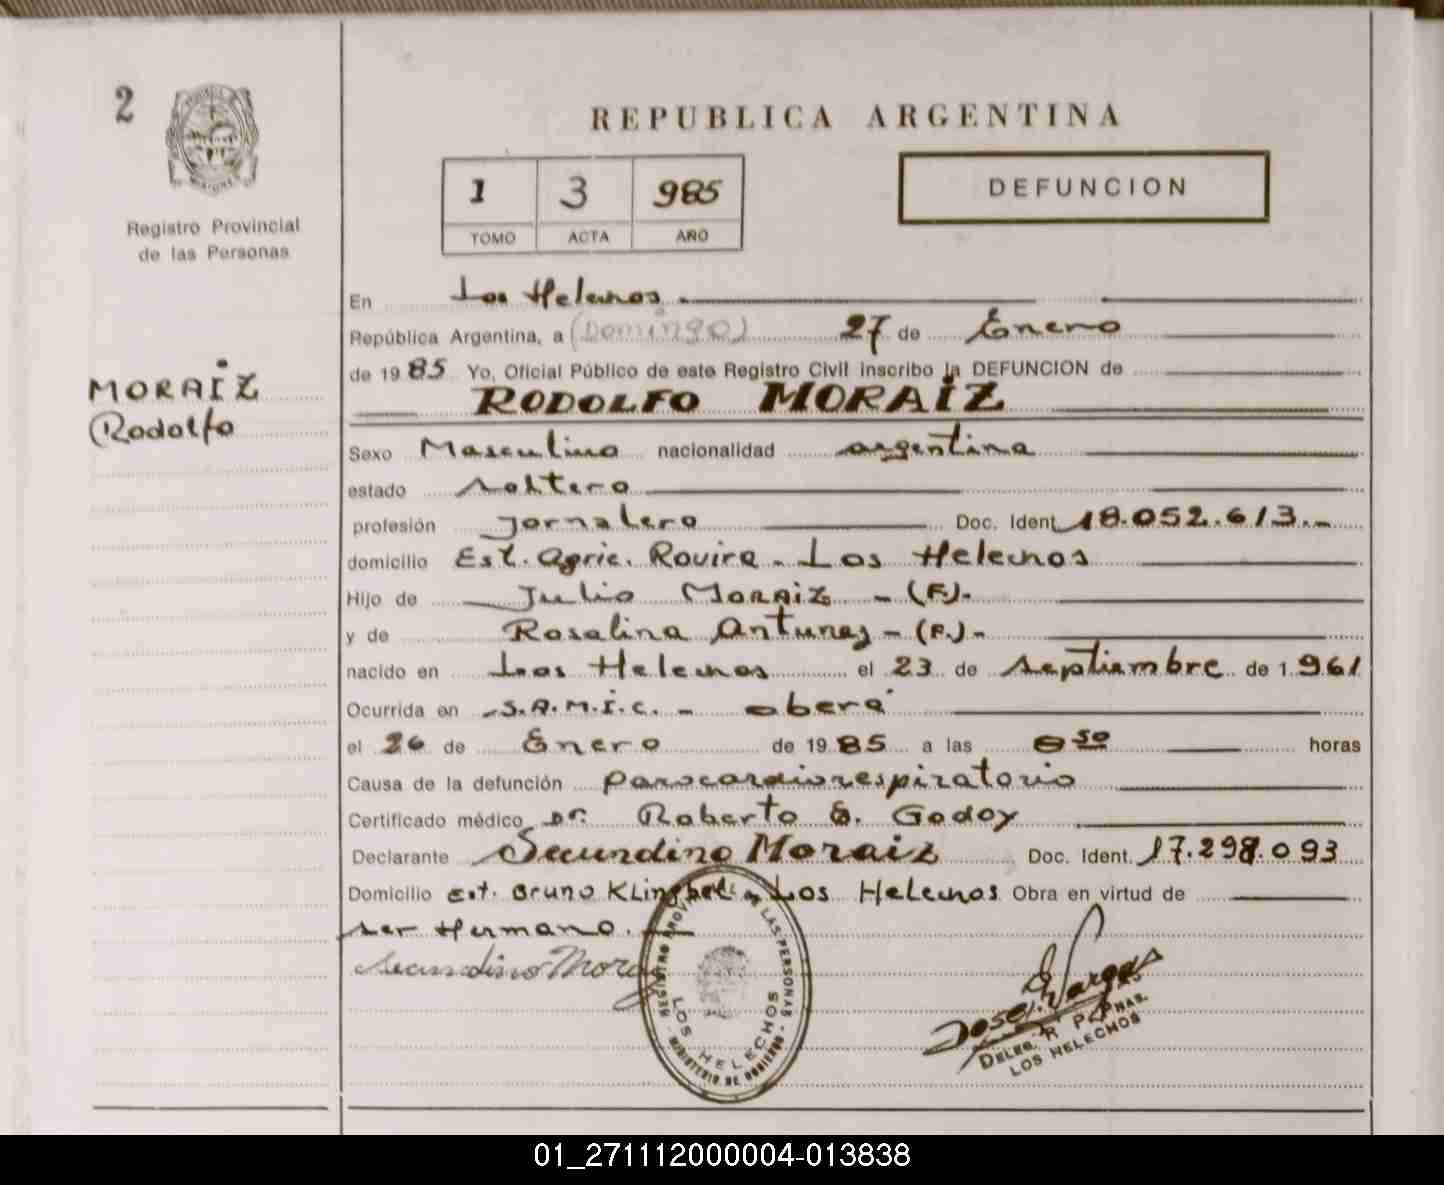 2
REPUBLICA ARGENTINA
1 3 985
TOMO ACTA AÑO
DEFUNCION
Registro Provincial
de las Personas
MORAIZ
Rodolfo
En Los Helechos.
República Argentina, a (Domingo) 27 de Enero
de 1985 Yo, Oficial Público de este Registro Civil inscribo la DEFUNCION de
RODOLFO MORAIZ
Sexo Masculino nacionalidad argentina
estado soltero
profesión Jornalero Doc. Ident. 18.052.613.-
domicilio Est. Agric. Rovira - Los Helechos
Hijo de Julio Moraiz - (F.).-
y de Rosalina Antunez - (F.).-
nacido en Los Helechos el 23 de septiembre de 1.961
Ocurrida en S.A.M.I.C. - oberá
el 26 de Enero de 1985 a las 8 50 horas
Causa de la defunción parocardiorespiratorio
Certificado médico Dr. Roberto Godoy
Declarante Secundino Moraiz Doc. Ident. 17.298.093
Domicilio Est. Bruno Klingbeil - Los Helechos Obra en virtud de
ser Hermano.
Secundino Moraiz
REGISTRO PROVINCIAL DE LAS PERSONAS
LOS HELECHOS
MINISTERIO DE GOBIERNO
Vargas
DELEG. R. P. PNAS.
LOS HELECHOS
01_271112000004-013838